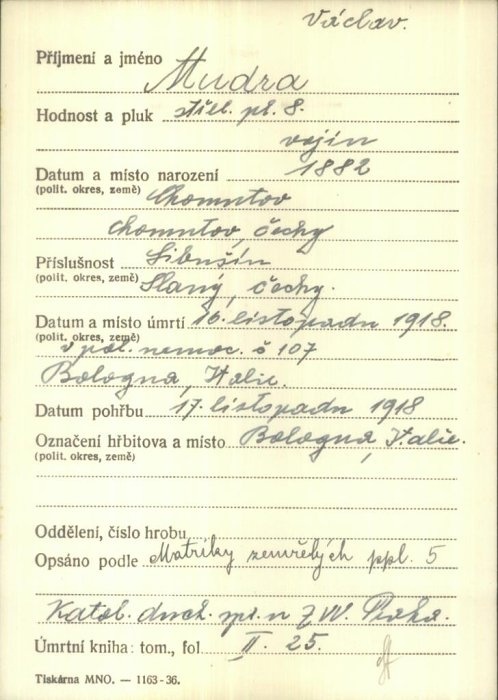 Václav.
Příjmení a jméno Mudra
Hodnost a pluk střel. pl. 8.
vojín
Datum a místo narození 1882
(polit. okres, země) Chomutov
Chomutov, Čechy
Příslušnost Libušín
(polit. okres, země) Slaný, Čechy.
Datum a místo úmrtí 16. listopadu 1918.
(polit. okres, země)
v pol. nemoc. č 107
Bologna, Italie.
Datum pohřbu 17. listopadu 1918
Označení hřbitova a místo Bologna, Italie.
(polit. okres, země)
Oddělení, číslo hrobu
Opsáno podle Matriky zemřelých ppl. 5
Katol. duch. spr. Praha.
Úmrtní kniha: tom., fol II. 25.
Tiskárna MNO. — 1163-36.